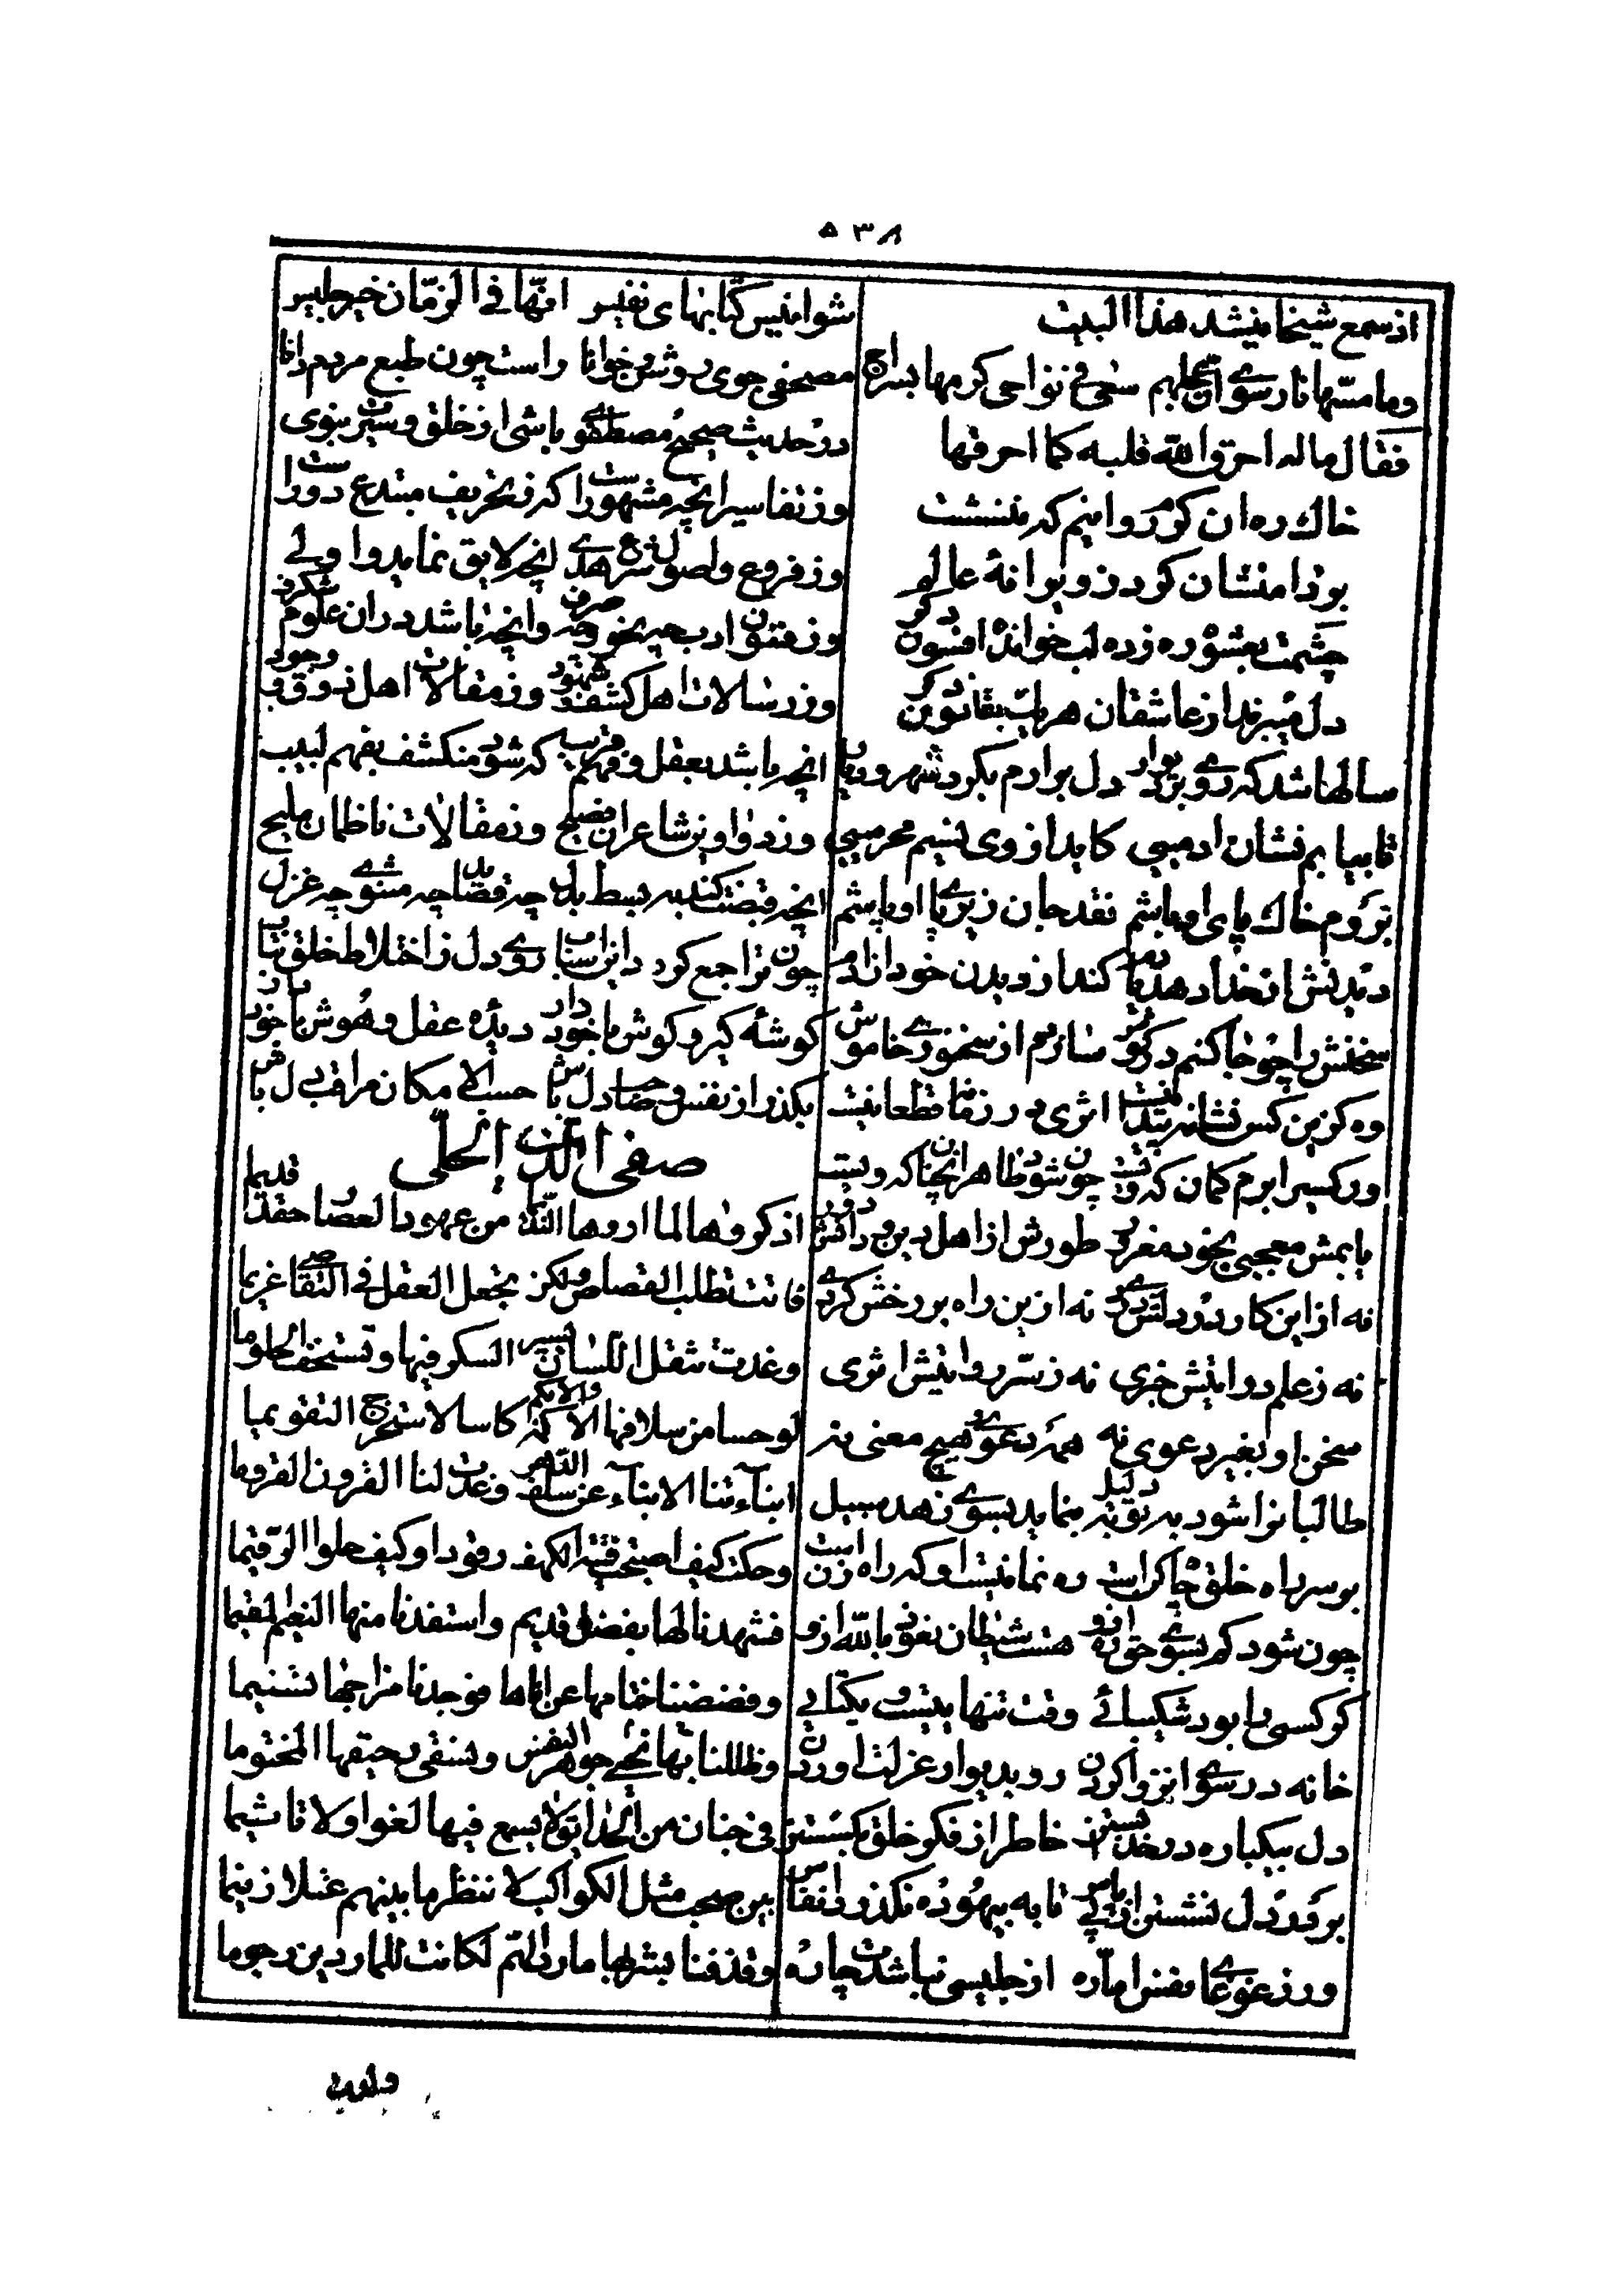 ۵۳۸
اذ سمع شیخا ینشد هذا البیت
وما مسّها نار سوی ان علجهم سعی فی نواحی کرمها بسراج
فقال ماله احرق الله قلبه کما احرقها
خاك ره ان کو روانیم که ننشست
بر دامنشان کرد ز ویرانهٔ عالم
چشمت بعشوه ره زده لب خوانده افسون دکر
دل میبرند از عاشقان هر یك بقانون دکر
سالها شد که روی بر دیوار دل برارم بکرد شهر و دیار
تا بیابم نشان ادمیی کاید از وی نسیم محرمیی
بروم خاك پای او باشم نقد جان زیر پای او پاشم
دیدنش از خدا دهد یادم کند از دیدن خود ازادم
سخنش را چو جا کنم در کوش سازدم از سخنوری خاموش
وه کزین کس نشانه پیدا نیست اثری در زمانه قطعا نیست
ور کسی را برم کمان که ویست چون شود ظاهر انچنان که ویست
یابمش معجبی بخود مغرور طورش از اهل دین و دانش دور
نه از این کار در دلش دردی نه ازین راه بر رخش کردی
نه ز علم درایتش خبری نه ز سرّ روایتش اثری
سخن او بغیر دعوی نه همه دعوی و هیچ معنی نه
طالبانرا شود به توبه دلیل بنماید بسوی زهد سبیل
بر سر راه خلق چاه کن است ره نما نیست او که راه زن است
چون شود کم بسوی حق ره از او هست شیطان نعوذ بالله ازو
کر کسی را بود شکیبائی وقت تنهائیست و یکتائی
خانه در کوی انزوا کردن رو بدیوار عزلت اوردن
دل بیکباره در خدا بستن خاطر از فکر خلق بکسستن
بر در دل نشستن از پی پاس تا به بیهوده نکذرد انفاس
ور ز غوغای نفس اماّره از جلیسی نباشدت چاره
شو انیس کتابهای نفیس انّها فی الزّمان خیر جلیس
مصحفی جوی روشن و خوانا راست چون طبع مردم دانا
در حدیث صحیح مصطفوی باشی از خلق و سیرت نبوی
وز تفاسیر انچه مشهور است که ز تحریف مبتدع دور است
وز فروع و اصول شرع هدی انچه لایق نماید و اولی
وز فنون ادب چه نحو و چه صرف وانچه باشد دران علوم شکرف
وز رسالات اهل کشف و شهود وز مقالات اهل ذوق و وجود
انچه باشد بعقل و فهم قریب که شود منکشف بفهم لبیب
وز دواوین شاعران فصیح وز مقالات ناظمان ملیح
انچه قبضت کند به بسط بدل چه قصاید چه مثنوی چه غزل
چون ترا جمع کردد این اسباب روی دل ز اختلاط خلق بتاب
کوشهٔ کیر و کوش با خود دار دیدهٔ عقل و هوش با خود دار
بکذر از نفس و صاحب دل باش حسب الامکان مراقب دل باش
صفی الدّین الحلّی
اذکرونا لما اروها النّدامی من عهود المعصار حقدا قدیما
فاتت تطلب القصاص ولکن تجعل العقل فی التقاضی غریما
وغدت تثقل اللسان بسیر السکر فیها وتستخف الحلوما
لو حسا من سلافها الاکمه والابکم کاسا لاستخرج التقویما
انباءتنا الابناء عن سلف الدّهر وعدت لنا القرون القروما
وحکت کیف اصبحت فتیة الکهف رقودا وکیف حلوا الرّقیما
فشهدنا لها بفضل قدیم واستفدنا منها النعیم المقیما
وفضضنا ختامها عن اناها فوجدنا مزاجها تسنیما
وظللنا بها نحیی جواهر النفس ونسقی رحیقها المختوما
فی جنان من الحدائق لا یسمع فیها لغوا ولا تاثیما
بین صحب مثل الکواکب لا تنظر ما بینهم عتلا زنیما
وقذفنا بشربها مارد الهم لکانت للماردین رجوما